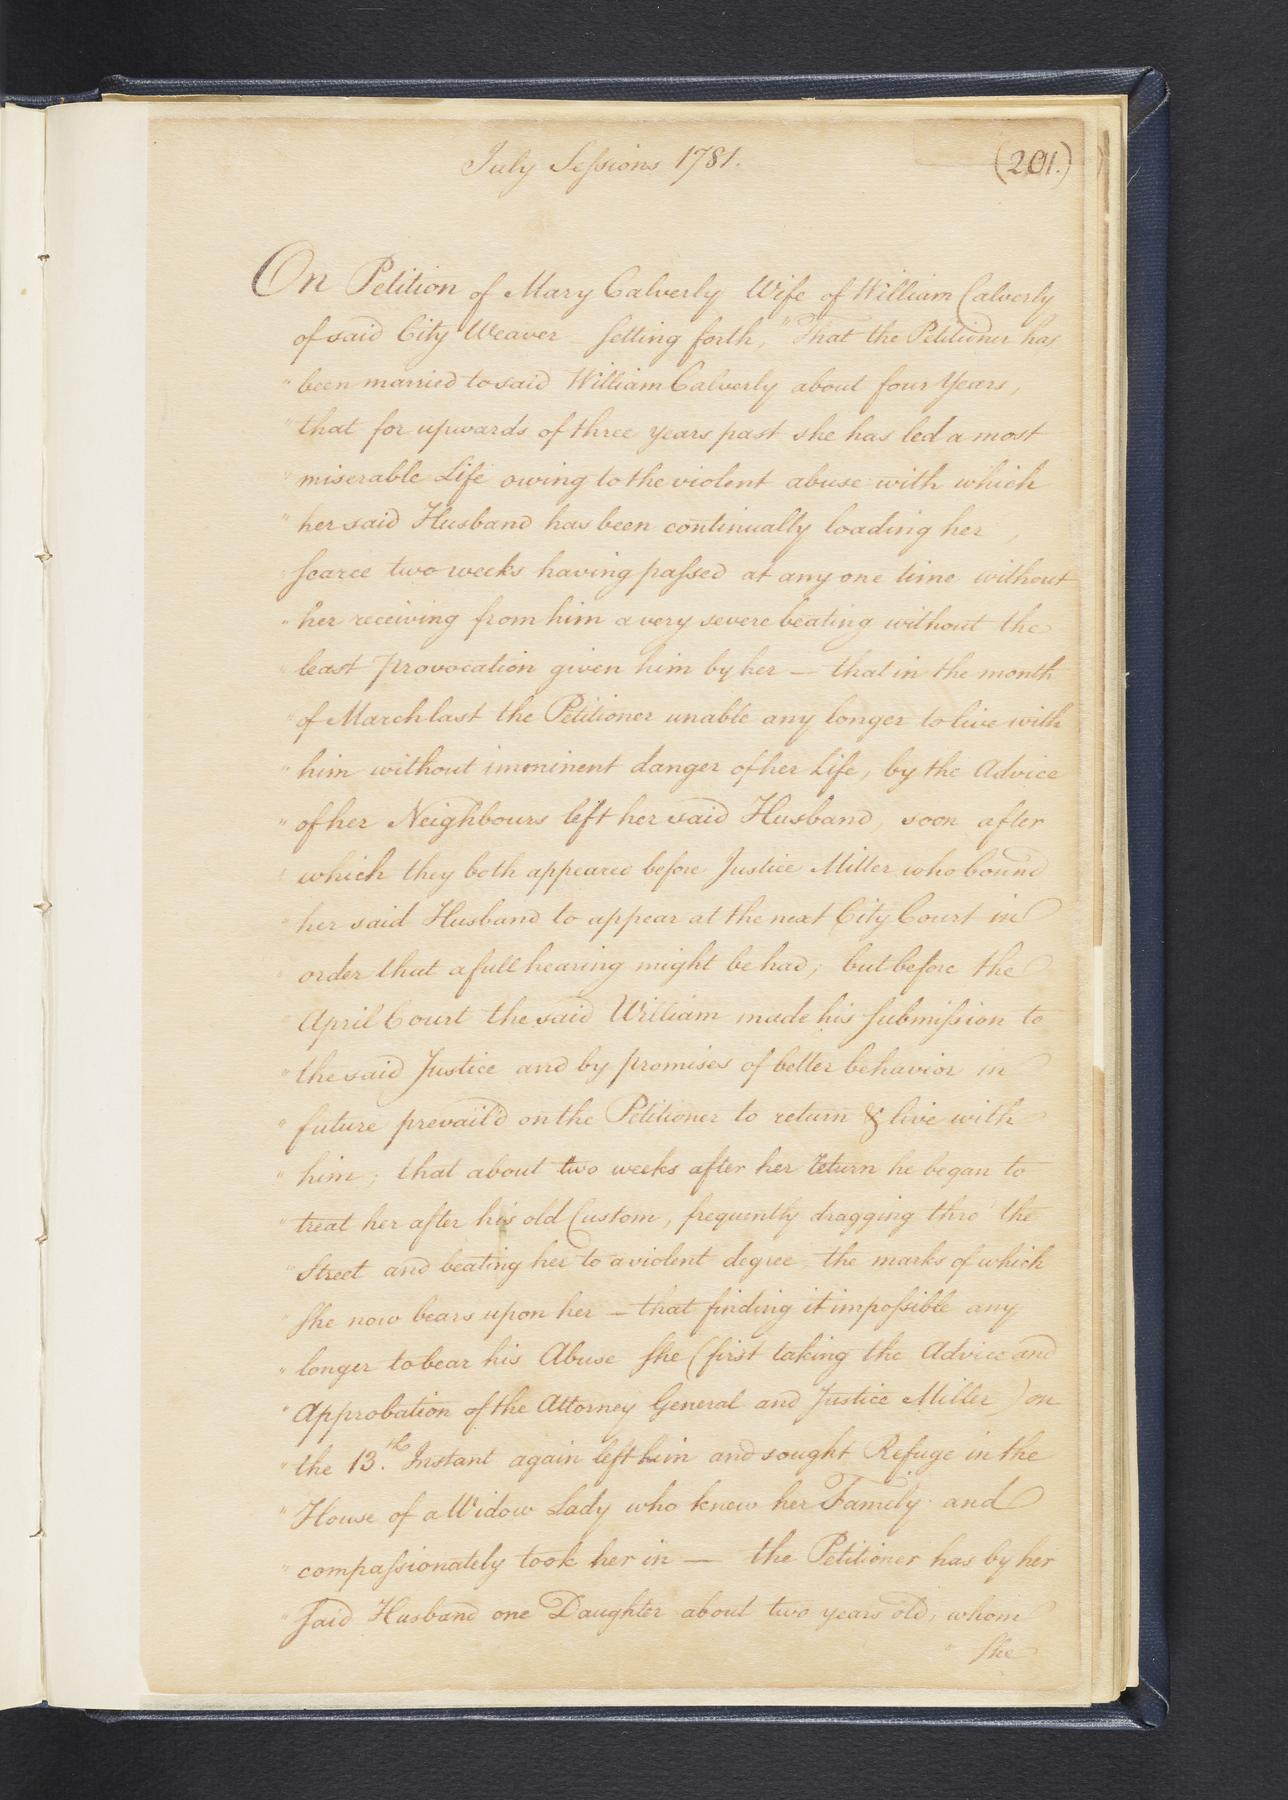 July Sessions 1781.
(201.)
On Petition of Mary Calverly Wife of William Calverly
of said City Weaver setting forth, "That the Petitioner has
"been married to said William Calverly about four Years,
"that for upwards of three years past she has led a most
"miserable Life owing to the violent abuse with which
"her said Husband has been continually loading her,
"scarce two weeks having passed at any one time without
"her receiving from him a very severe beating without the
"least provocation given him by her — that in the month
"of March last the Petitioner unable any longer to live with
"him without imminent danger of her Life, by the Advice
"of her Neighbours left her said Husband, soon after
"which they both appeared before Justice Miller who bound
"her said Husband to appear at the next City Court in
"order that a full hearing might be had; but before the
"April Court the said William made his submission to
"the said Justice and by promises of better behavior in
"future prevail'd on the Petitioner to return & live with
"him; that about two weeks after her return he began to
"treat her after his old Custom, frequently dragging thro' the
"Street and beating her to a violent degree, the marks of which
"she now bears upon her — that finding it impossible any
"longer to bear his Abuse she (first taking the Advice and
"Approbation of the Attorney General and Justice Miller) on
"the 13.th Instant again left him and sought Refuge in the
"House of a Widow Lady who knew her Family and
"compassionately took her in — the Petitioner has by her
"said Husband one Daughter about two years old, whom
"she